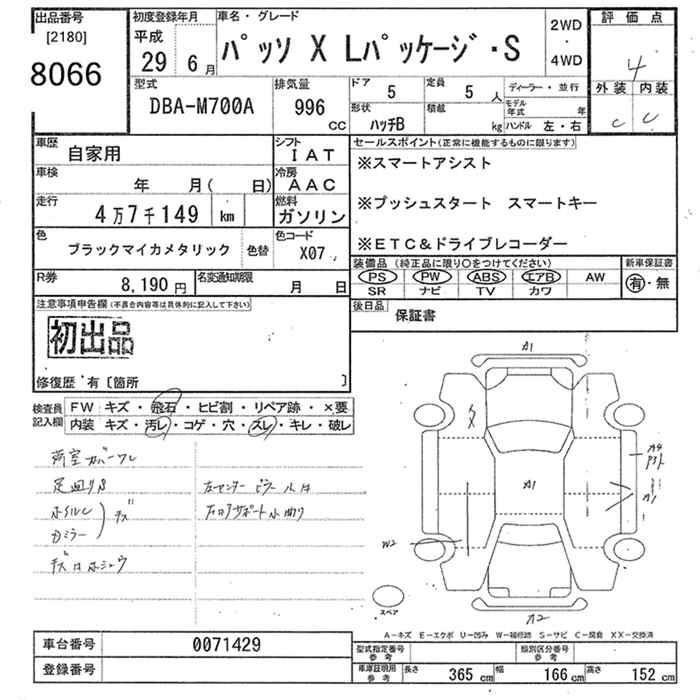 出品番号 [2180] 8066
初度登録年月 平成 29年 6月
車名・グレード パッソ X Lパッケージ・S
2WD・4WD
評価点 4
外装 C 内装 C
型式 DBA-M700A
排気量 996 CC
ドア 5
形状 ハッチB
定員 5人
積載 kg
ディーラー・並行
モデル年式 年
ハンドル 左・右
車歴 自家用
シフト IAT
車検 年 月( 日)
冷房 AAC
走行 4万7千149 km
燃料 ガソリン
色 ブラックマイカメタリック 色替
色コード X07
R券 8,190円
名変通知期限 月 日
セールスポイント(正常に機能するものに限ります)
※スマートアシスト
※プッシュスタート スマートキー
※ETC&ドライブレコーダー
装備品 (純正品に限り○をつけてください)
PS PW ABS エアB AW
SR ナビ TV カワ
新車保証書
有・無
後日品 保証書
注意事項申告欄(不具合内容等は具体的に記入して下さい)
初出品
修復歴 有〔箇所 〕
検査員記入欄
FW キズ・飛石・ヒビ割・リペア跡・×要
内装 キズ・汚レ・コゲ・穴・スレ・キレ・破レ
荷室カバーフレ
足廻りS
ホイルC
Dミラー
キズ
キズはホシュウ
左センターピラー
A1
A1
A1
W2
A2
スペア
A-キズ E-エクボ U-凹み W-補修跡 S-サビ C-腐食 XX-交換済
車台番号 0071429
登録番号
型式指定番号 参考
類別区分番号 参考
車庫証明用 参考 長さ 365 cm 幅 166 cm 高さ 152 cm